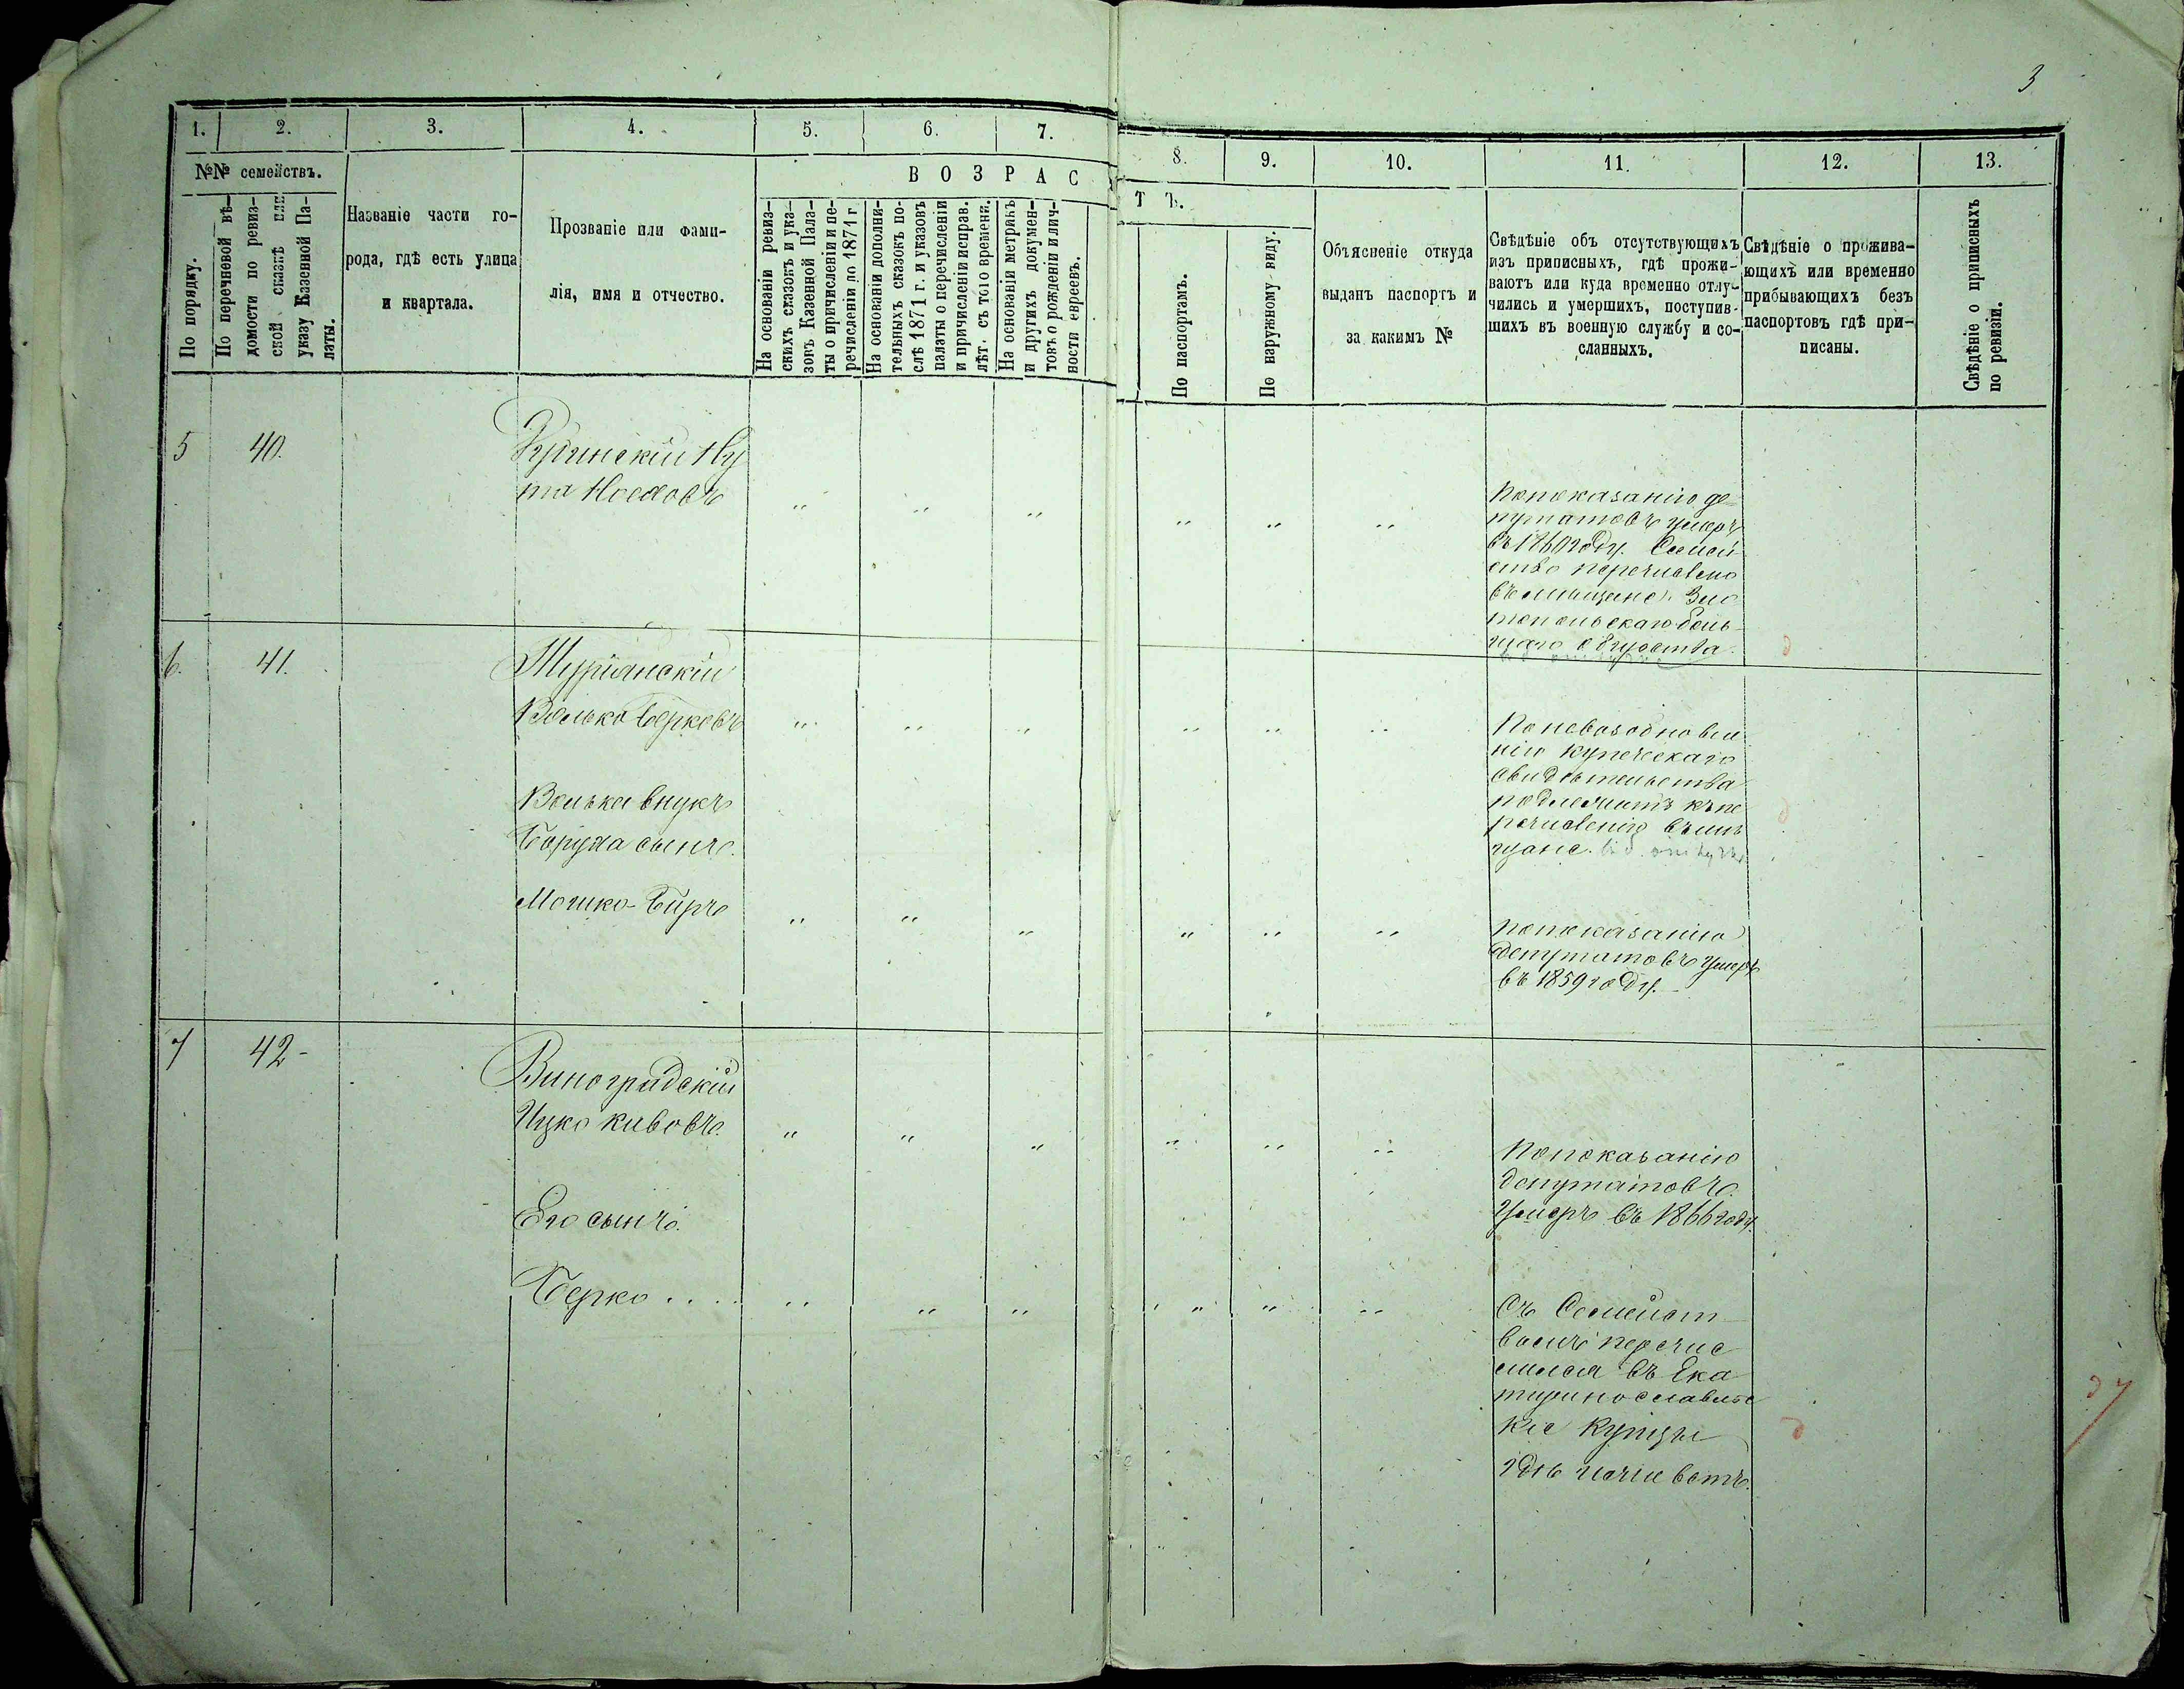 3
1. 2. 3. 4. 5. 6. 7. 8. 9. 10. 11. 12. 13.
№№ семействъ.
По порядку.
По перечневой вѣ-
домости по ревиз-
ской сказкѣ или
указу Казенной Па-
латы.
Названіе части го-
рода, гдѣ есть улица
и квартала.
Прозваніе или фами-
лія, имя и отчество.
ВОЗРАС
ТЪ.
На основаніи ревиз-
скихъ сказокъ и ука-
зовъ Казенной Пала-
ты о причисленіи и пе-
речисленіи по 1871 г.
На основаніи дополни-
тельныхъ сказокъ по-
слѣ 1871 г. и указовъ
палаты о перечисленіи
и причисленіи исправ.
лѣт. съ того времени.
На основаніи метрикъ
и другихъ докумен-
товъ о рожденіи и лич-
ности евреевъ.
По паспортамъ.
По наружному виду.
Объясненіе откуда
выданъ паспортъ и
за какимъ №
Свѣдѣніе объ отсутствующихъ
изъ приписныхъ, гдѣ прожи-
ваютъ или куда временно отлу-
чились и умершихъ, поступив-
шихъ въ военную службу и со-
сланныхъ.
Свѣдѣніе о прожива-
ющихъ или временно
прибывающихъ безъ
паспортовъ гдѣ при-
писаны.
Свѣдѣніе о приписныхъ
по ревизіи.
5 40.
По показанію де
путатовъ умеръ
въ 1860 году. Семей
ство перечислено
въ мищане
6. 41.
Турианскій
Волько Берковъ
По невозобновле
нію купеческаго
свидѣтельства
подлежитъ къ пе
речисленію въ мѣ
щане.
Волька внукъ
Боруха сынъ.
Мошко-Бер
По показанію
депутатовъ умеръ
въ 1859 году.
7 42-
Виноградскій
Ицко Кивовъ.
По показанію
депутатовъ.
Умеръ въ 1866 году.
Его сынъ.
Берко . . . .
Съ Семейст
вомъ перечис
лился въ Ека
теринославс
кіе Купцы
гдѣ